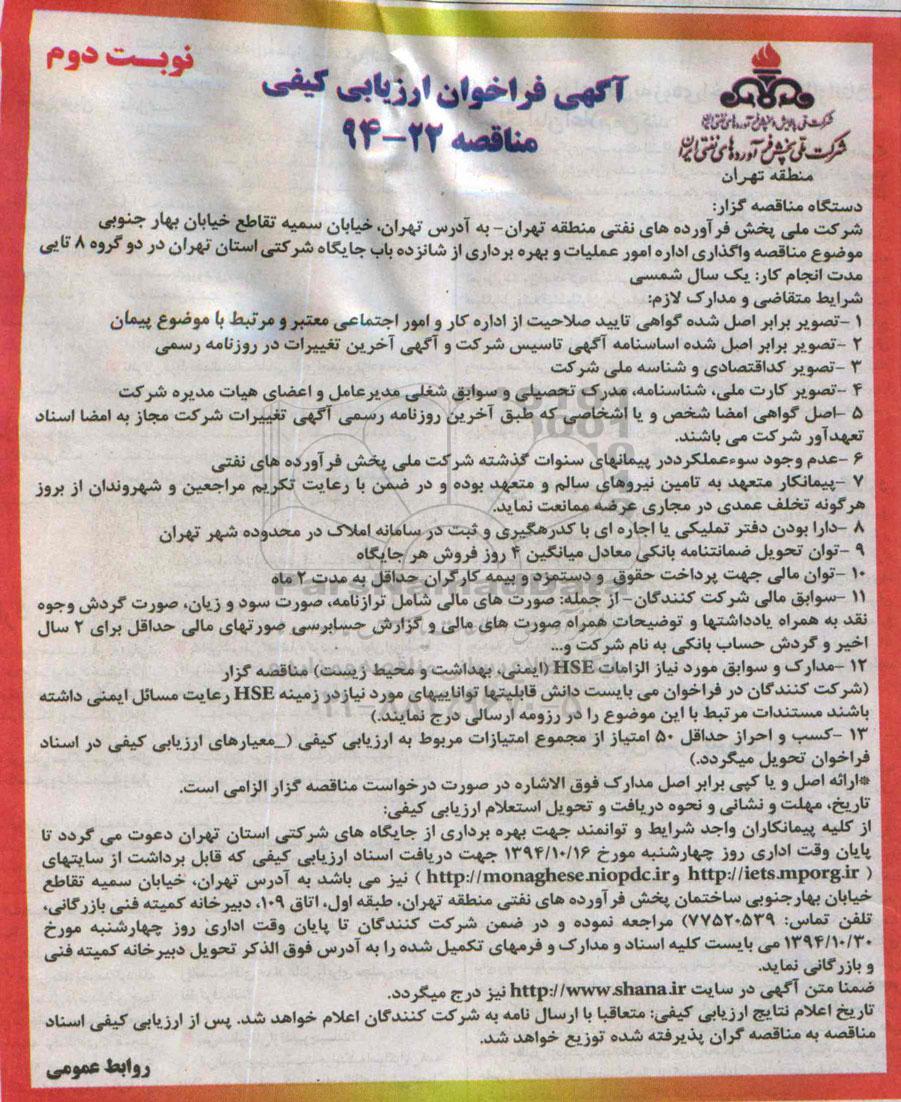 نوبت دوم
آگهی فراخوان ارزیابی کیفی
مناقصه ۲۲-۹۴
شرکت ملی پالایش و پخش فرآورده های نفتی ایران
شرکت ملی پخش فرآورده های نفتی ایران
منطقه تهران
دستگاه مناقصه گزار:
شرکت ملی پخش فرآورده های نفتی منطقه تهران- به آدرس تهران، خیابان سمیه تقاطع خیابان بهار جنوبی
موضوع مناقصه واگذاری اداره امور عملیات و بهره برداری از شانزده باب جایگاه شرکتی استان تهران در دو گروه ۸ تایی
مدت انجام کار: یک سال شمسی
شرایط متقاضی و مدارک لازم:
۱ -تصویر برابر اصل شده گواهی تایید صلاحیت از اداره کار و امور اجتماعی معتبر و مرتبط با موضوع پیمان
۲ -تصویر برابر اصل شده اساسنامه آگهی تاسیس شرکت و آگهی آخرین تغییرات در روزنامه رسمی
۳ -تصویر کداقتصادی و شناسه ملی شرکت
۴ -تصویر کارت ملی، شناسنامه، مدرک تحصیلی و سوابق شغلی مدیرعامل و اعضای هیات مدیره شرکت
۵ -اصل گواهی امضا شخص و یا اشخاصی که طبق آخرین روزنامه رسمی آگهی تغییرات شرکت مجاز به امضا اسناد
تعهدآور شرکت می باشند.
۶ -عدم وجود سوءعملکرددر پیمانهای سنوات گذشته شرکت ملی پخش فرآورده های نفتی
۷ -پیمانکار متعهد به تامین نیروهای سالم و متعهد بوده و در ضمن با رعایت تکریم مراجعین و شهروندان از بروز
هرگونه تخلف عمدی در مجاری عرضه ممانعت نماید.
۸ -دارا بودن دفتر تملیکی یا اجاره ای با کدرهگیری و ثبت در سامانه املاک در محدوده شهر تهران
۹ -توان تحویل ضمانتنامه بانکی معادل میانگین ۴ روز فروش هر جایگاه
۱۰ -توان مالی جهت پرداخت حقوق و دستمزد و بیمه کارگران حداقل به مدت ۲ ماه
۱۱ -سوابق مالی شرکت کنندگان- از جمله: صورت های مالی شامل ترازنامه، صورت سود و زیان، صورت گردش وجوه
نقد به همراه یادداشتها و توضیحات همراه صورت های مالی و گزارش حسابرسی صورتهای مالی حداقل برای ۲ سال
اخیر و گردش حساب بانکی به نام شرکت و...
۱۲ -مدارک و سوابق مورد نیاز الزامات HSE (ایمنی، بهداشت و محیط زیست) مناقصه گزار
(شرکت کنندگان در فراخوان می بایست دانش قابلیتها تواناییهای مورد نیازدر زمینه HSE رعایت مسائل ایمنی داشته
باشند مستندات مرتبط با این موضوع را در رزومه ارسالی درج نمایند.)
۱۳ -کسب و احراز حداقل ۵۰ امتیاز از مجموع امتیازات مربوط به ارزیابی کیفی (_معیارهای ارزیابی کیفی در اسناد
فراخوان تحویل میگردد.)
*ارائه اصل و یا کپی برابر اصل مدارک فوق الاشاره در صورت درخواست مناقصه گزار الزامی است.
تاریخ، مهلت و نشانی و نحوه دریافت و تحویل استعلام ارزیابی کیفی:
از کلیه پیمانکاران واجد شرایط و توانمند جهت بهره برداری از جایگاه های شرکتی استان تهران دعوت می گردد تا
پایان وقت اداری روز چهارشنبه مورخ ۱۳۹۴/۱۰/۱۶ جهت دریافت اسناد ارزیابی کیفی که قابل برداشت از سایتهای
( http://iets.mporg.ir و http://monaghese.niopdc.ir ) نیز می باشد به آدرس تهران، خیابان سمیه تقاطع
خیابان بهارجنوبی ساختمان پخش فرآورده های نفتی منطقه تهران، طبقه اول، اتاق ۱۰۹، دبیرخانه کمیته فنی بازرگانی،
تلفن تماس: ۷۷۵۲۰۵۳۹) مراجعه نموده و در ضمن شرکت کنندگان تا پایان وقت اداری روز چهارشنبه مورخ
۱۳۹۴/۱۰/۳۰ می بایست کلیه اسناد و مدارک و فرمهای تکمیل شده را به آدرس فوق الذکر تحویل دبیرخانه کمیته فنی
و بازرگانی نماید.
ضمنا متن آگهی در سایت http://www.shana.ir نیز درج میگردد.
تاریخ اعلام نتایج ارزیابی کیفی: متعاقبا با ارسال نامه به شرکت کنندگان اعلام خواهد شد. پس از ارزیابی کیفی اسناد
مناقصه به مناقصه گران پذیرفته شده توزیع خواهد شد.
روابط عمومی